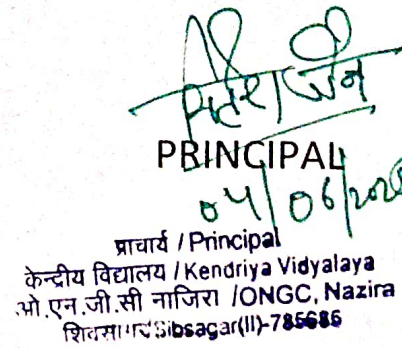 जैन
PRINCIPAL
04/06/202
प्राचार्य / Principal
केन्द्रीय विद्यालय / Kendriya Vidyalaya
ओ.एन.जी.सी नाजिरा /ONGC, Nazira
शिवसागर/Sibsagar(II)-785685